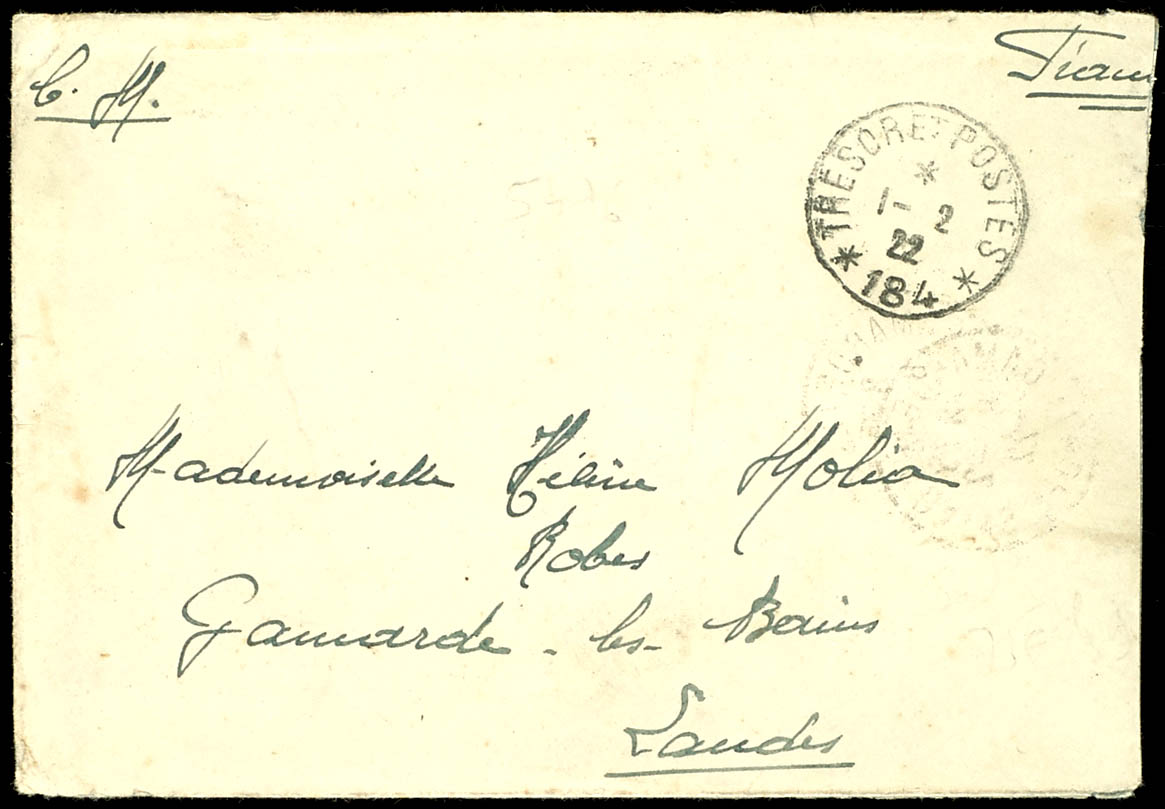 C. M.
TRESOR ET POSTES
1 - 2
22
* 184 *
Mademoiselle Hélène Molia
Robes
Gamarde - les - Bains
Landes